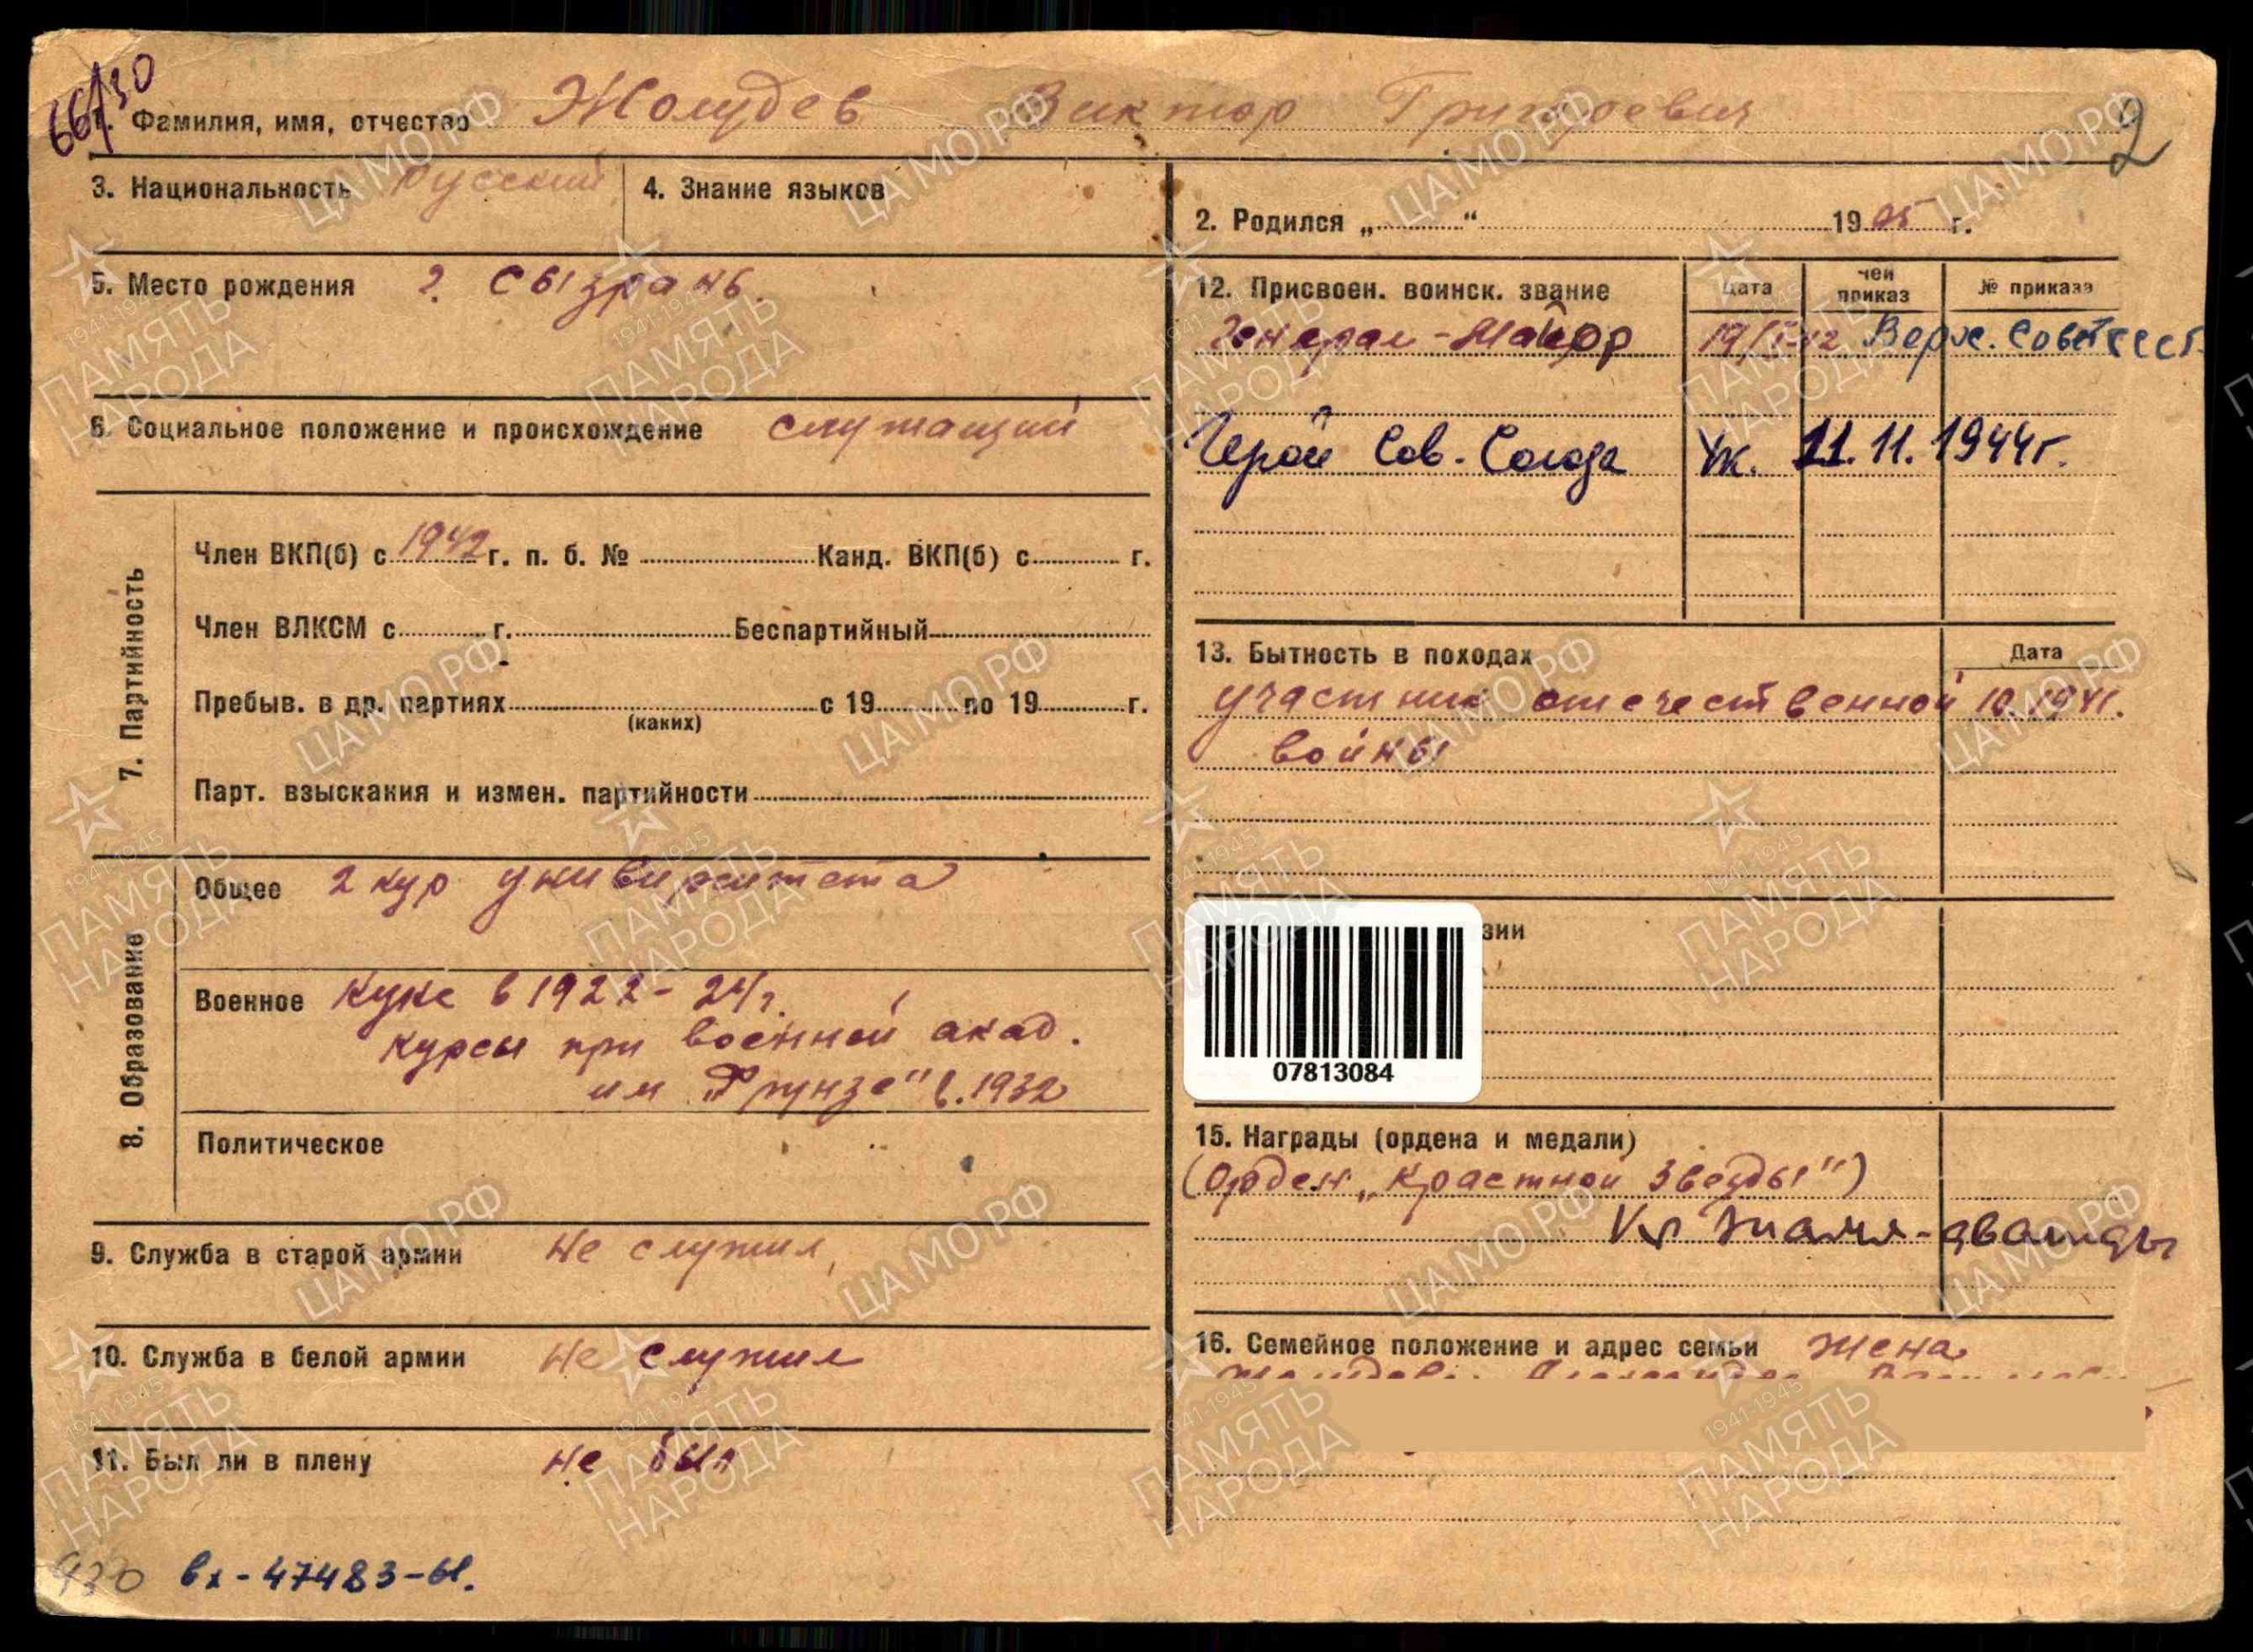 66/30
1. Фамилия, имя, отчество Жолудев Виктор Григорьевич
2
3. Национальность русский 4. Знание языков
2. Родился „ “ 1905 г.
5. Место рождения г. Сызрань.
6. Социальное положение и происхождение служащий
7. Партийность
Член ВКП(б) с 1942 г. п. б. № Канд. ВКП(б) с г.
Член ВЛКСМ с г. Беспартийный
Пребыв. в др. партиях с 19 по 19 г.
(каких)
Парт. взыскания и измен. партийности
8. Образование
Общее 2 кур университета
Военное Курс в 1922-24 г.
курсы при военной акад.
им „Фрунзе" в. 1932
Политическое
9. Служба в старой армии не служил
10. Служба в белой армии не служил
11. Был ли в плену не был
930 вх-47483-61.
12. Присвоен. воинск. звание Дата чей приказ № приказа
Генерал-Майор 19/ 42 Верх. Совет СССР.
Герой Сов. Союза Ук. 11.11.1944г.
13. Бытность в походах Дата
участник отечественной 10.1941.
войны
зии
07813084
15. Награды (ордена и медали)
(Орден „Крастной Звезды")
Кр Знамя - дважды
16. Семейное положение и адрес семьи Жена
ЦАМО.РФ
1941-1945
ПАМЯТЬ
НАРОДА